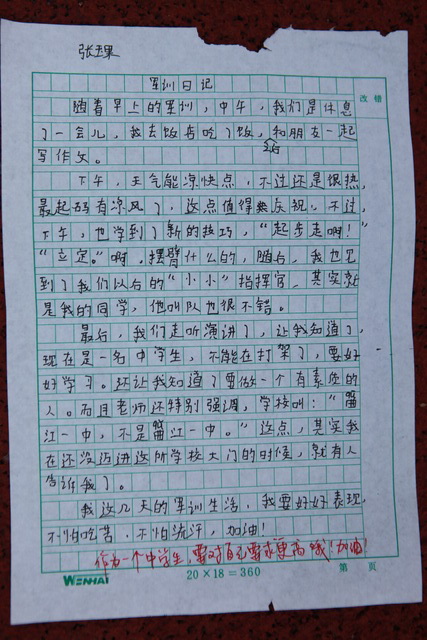 张珠
军训日记
改错
随着早上的军训，中午，我们是休息
了一会儿，我去饭店吃了饭，和朋友一起
写作文。
下午，天气能凉快点，不过还是很热，
最起码有凉风了，这点值得庆祝。不过，
下午，也学到了新的技巧，“起步走啊！”
“立定。”啊，摆臂什么的，随后，我也见
到了我们以后的“小小”指挥官，其实就
是我的同学，他叫队也很不错。
最后，我们走听演讲了，让我知道了，
现在是一名中学生，不能在打架了，要好
好学习。还让我知道了要做一个有素质的
人。而且老师还特别强调，学校叫：“
江一中，不是江一中。”这点，其实我
在还没迈进这所学校大门的时候，就有人
告诉我了。
我这几天的军训生活，我要好好表现，
不怕吃苦，不怕流汗，加油！
作为一个中学生，要对自己要求更高哦！加油！
WENHAI
20×18=360
第 页